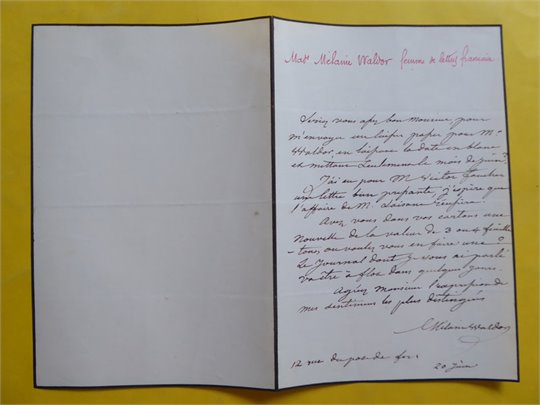 Mme Mélanie Waldor femme de lettres française
Seriez vous assez bon Monsieur pour
m'envoyer un laisser passer pour Mr
Waldor, en laissant la date en blanc
et mettant seulement le mois de juin ?
J'ai eu pour M. Victor
une lettre bien pressante, j'espère que
l'affaire de M.
Avez vous dans vos cartons une
Nouvelle de la valeur de 3 ou 4 feuille
-tons ou voulez vous en faire une ?
Le Journal dont je vous ai parlé
va être à flot dans quelques jours.
Agréez Monsieur l'expression de
mes sentiments les plus distingués
Mélanie Waldor
12 rue du
20 juin